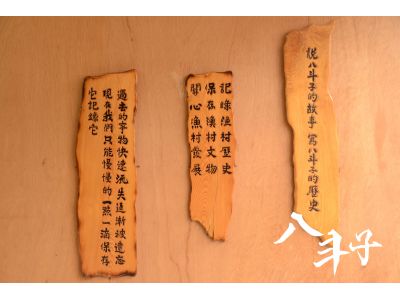 說八斗子的故事 寫八斗子的歷史
記錄漁村歷史
保存漁村文物
關心漁村發展
過去的事物快速流失逐漸被遺忘
現在我們只能慢慢的一點一滴保存
它記錄它
八斗子